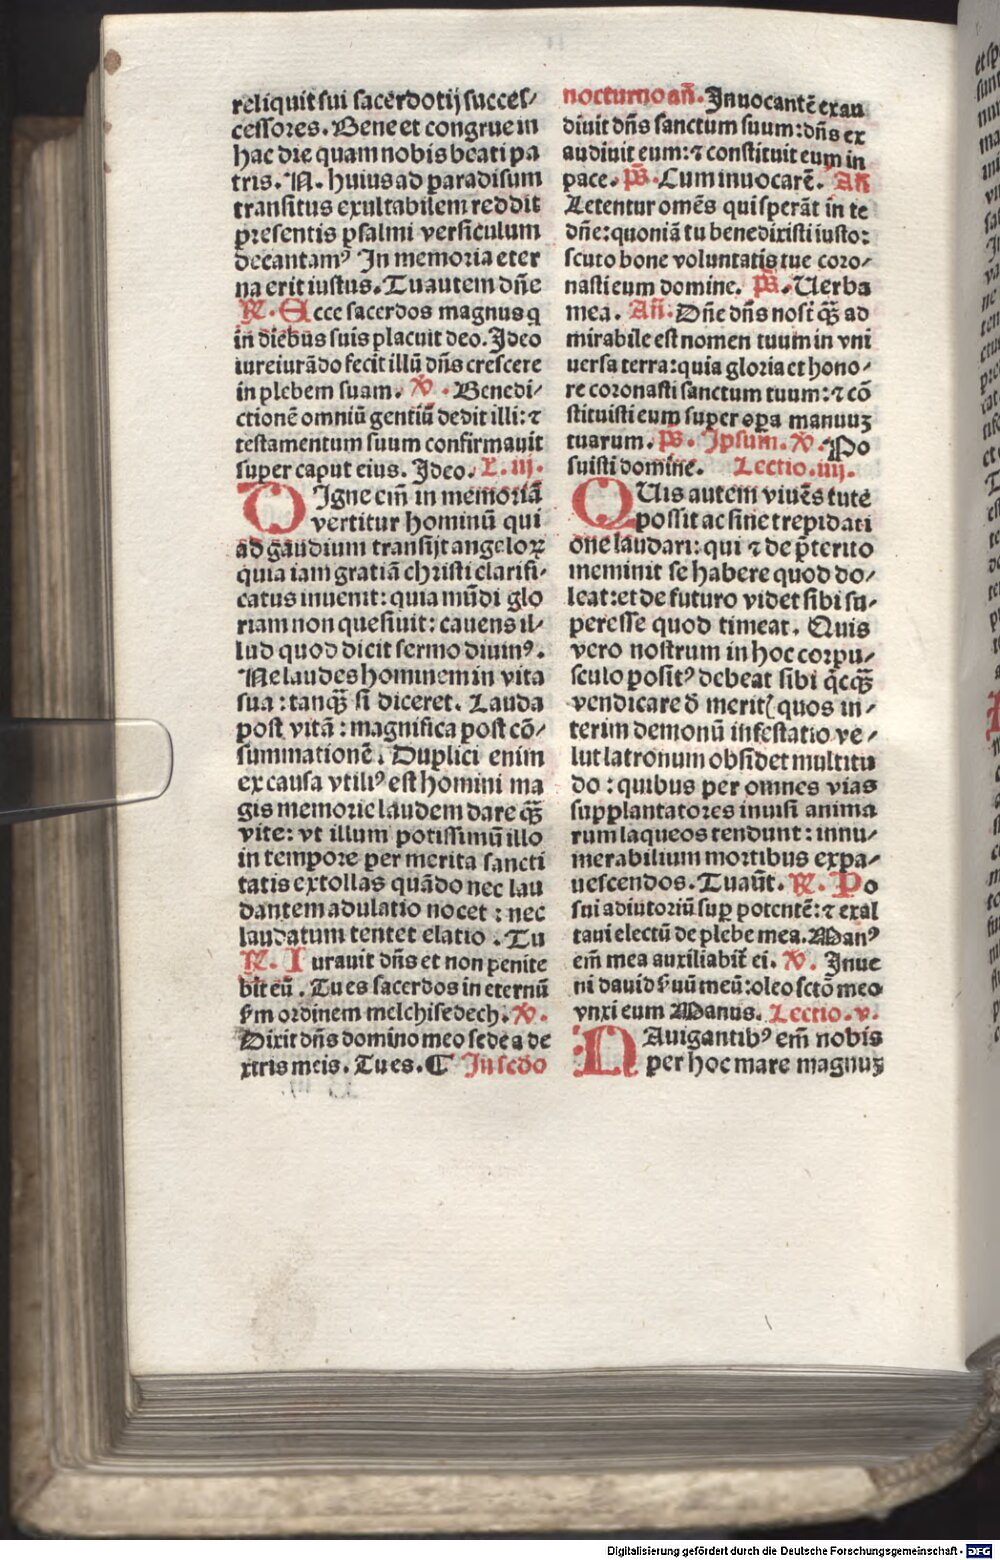 reliquit sui sacerdotij succes/
cessores. Bene et congrue in
hac die quam nobis beati pa
tris. N. huius ad paradisum
transitus exultabilem reddit
presentis psalmi versiculum
decantamꝰ In memoria eter
na erit iustus. Tu autem dñe
℟. Ecce sacerdos magnus q
in diebus suis placuit deo. Ideo
iureiurãdo fecit illũ dñs crescere
in plebem suam. ℣. Benedi/
ctionẽ omniũ gentiũ dedit illi: ⁊
testamentum suum confirmauit
super caput eius. Ideo. L. iij.
DIgne em̃ in memoriã
vertitur hominũ qui
ad gaudium transijt angeloꝝ
quia iam gratiã christi clarifi/
catus inuenit: quia mũdi glo
riam non quesiuit: cauens il/
lud quod dicit sermo diuinꝰ.
Ne laudes hominem in vita
sua: tanqꝫ̃ si diceret. Lauda
post vitã: magnifica post cõ/
summationẽ. Duplici enim
ex causa vtiliꝰ est homini ma
gis memorie laudem dare qꝫ̃
vite: vt illum potissimũ illo
in tempore per merita sancti
tatis extollas quãdo nec lau
dantem adulatio nocet: nec
laudatum tentet elatio. Tu
℟. Iurauit dñs et non penite
bit eũ. Tu es sacerdos in eternũ
ẜm ordinem melchisedech. ℣.
Dixit dñs domino meo sede a de
xtris meis. Tu es. ¶ In sedo
nocturno añ. Inuocantẽ exau
diuit dñs sanctum suum: dñs ex
audiuit eum: ⁊ constituit eum in
pace. p̃s. Cum inuocarẽ. Añ
Letentur omẽs qui sperãt in te
dñe: quoniã tu benedixisti iusto:
scuto bone voluntatis tue coro/
nasti eum domine. p̃s. Uerba
mea. Añ. Dñe dñs nost̃ qꝫ̃ ad
mirabile est nomen tuum in vni
uersa terra: quia gloria et hono/
re coronasti sanctum tuum: ⁊ cõ
stituisti eum super opa manuuꝫ
tuarum. p̃s. Ipsum. ℣. Po
suisti domine. Lectio. iiij.
QUis autem viuẽs tute
possit ac sine trepidati
one laudari: qui ⁊ de p̃terito
meminit se habere quod do/
leat: et de futuro videt sibi su/
peresse quod timeat. Quis
vero nostrum in hoc corpu/
sculo positꝰ debeat sibi q̃cqꝫ̃
vendicare d̃ meritꝭ quos in/
terim demonũ infestatio ve/
lut latronum obsidet multitu
do: quibus per omnes vias
supplantatores inuisi anima
rum laqueos tendunt: innu/
merabilium mortibus expa/
uescendos. Tu aũt. ℟. Po
sui adiutoriũ sup potentẽ: ⁊ exal
taui electũ de plebe mea. Manꝰ
em̃ mea auxiliabit̃ ei. ℣. Inue
ni dauid ẜuũ meũ: oleo sctõ meo
vnxi eum Manus. Lectio. v.
NAuigantibꝰ em̃ nobis
per hoc mare magnuꝫ
Digitalisierung gefördert durch die Deutsche Forschungsgemeinschaft - DFG